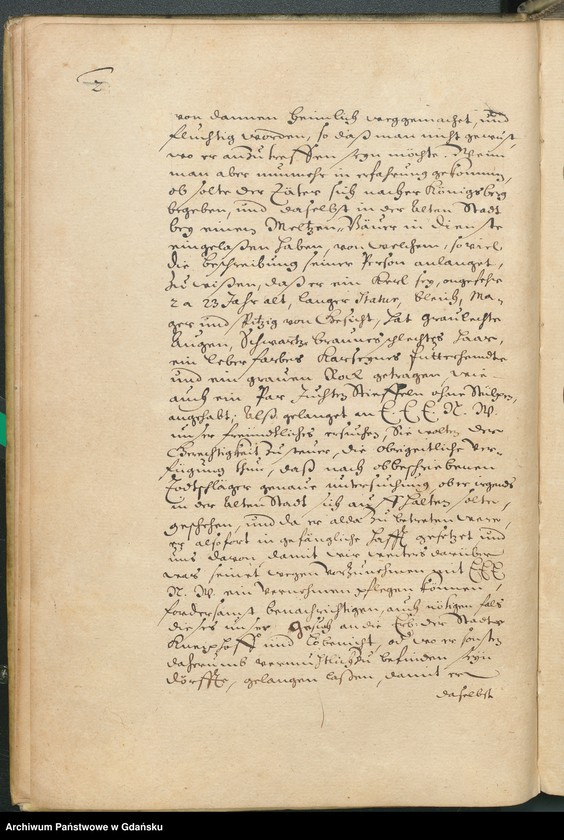 2
von dannen heimlich weggemachet, und
fluchtig worden, so daß man nicht gewust,
wo er anzutreffen seyn möchte. Wenn
man aber nunmehr in erfahrung gekommen,
ob solte der Thäter sich nacher Königsberg
begeben, und daselbst in der Alten Stadt
bey einem Meltzen-Bräuer in Dienste
eingelaßen haben, von welchem, so viel
die beschreibung seiner Person anlanget,
zu wißen, daß er ein Kerl sey, ongefehr
22 a 23 Jahr alt, langer Statur, bleich, Ma-
ger und spitzig von Gesicht, hat graulechte
Augen, Schwartz braunes schlechtes Haar,
ein leberfarbes Futterhemdte
und ein grauen Rock getragen, wie
auch ein Par Juchten Stieffeln ohne Stülpen,
angehabt; Alß gelanget an E. E. E. N. W.
unser freündtliches ersuchen, Sie wolten der
Gerechtigkeit zu steuer, die obrigkeitliche Ver-
fügung thun, daß nach obbeschriebenen
Todtschläger genaue untersuchung, ob er irgends
in der Alten Stadt sich auffhalten solte,
geschehen, und da er alda zu betreten were,
er alsofort in gefängliche Hafft gesetzet und
uns davon, damit wir weiters darüber
was seinet wegen vorzunehmen mit E. E. E.
N. W. ein vernehmen pflegen können,
fordersamst benachrichtigen, auch nötigen fals
dieses unser gesuch an die Erb: der Stadte
Kneiphoff und Löbenicht, od. wo er sonsten
daherumb vermuthlich zu befinden seyn
dörffte, gelangen laßen, damit er
daselbst
Archiwum Państwowe w Gdańsku